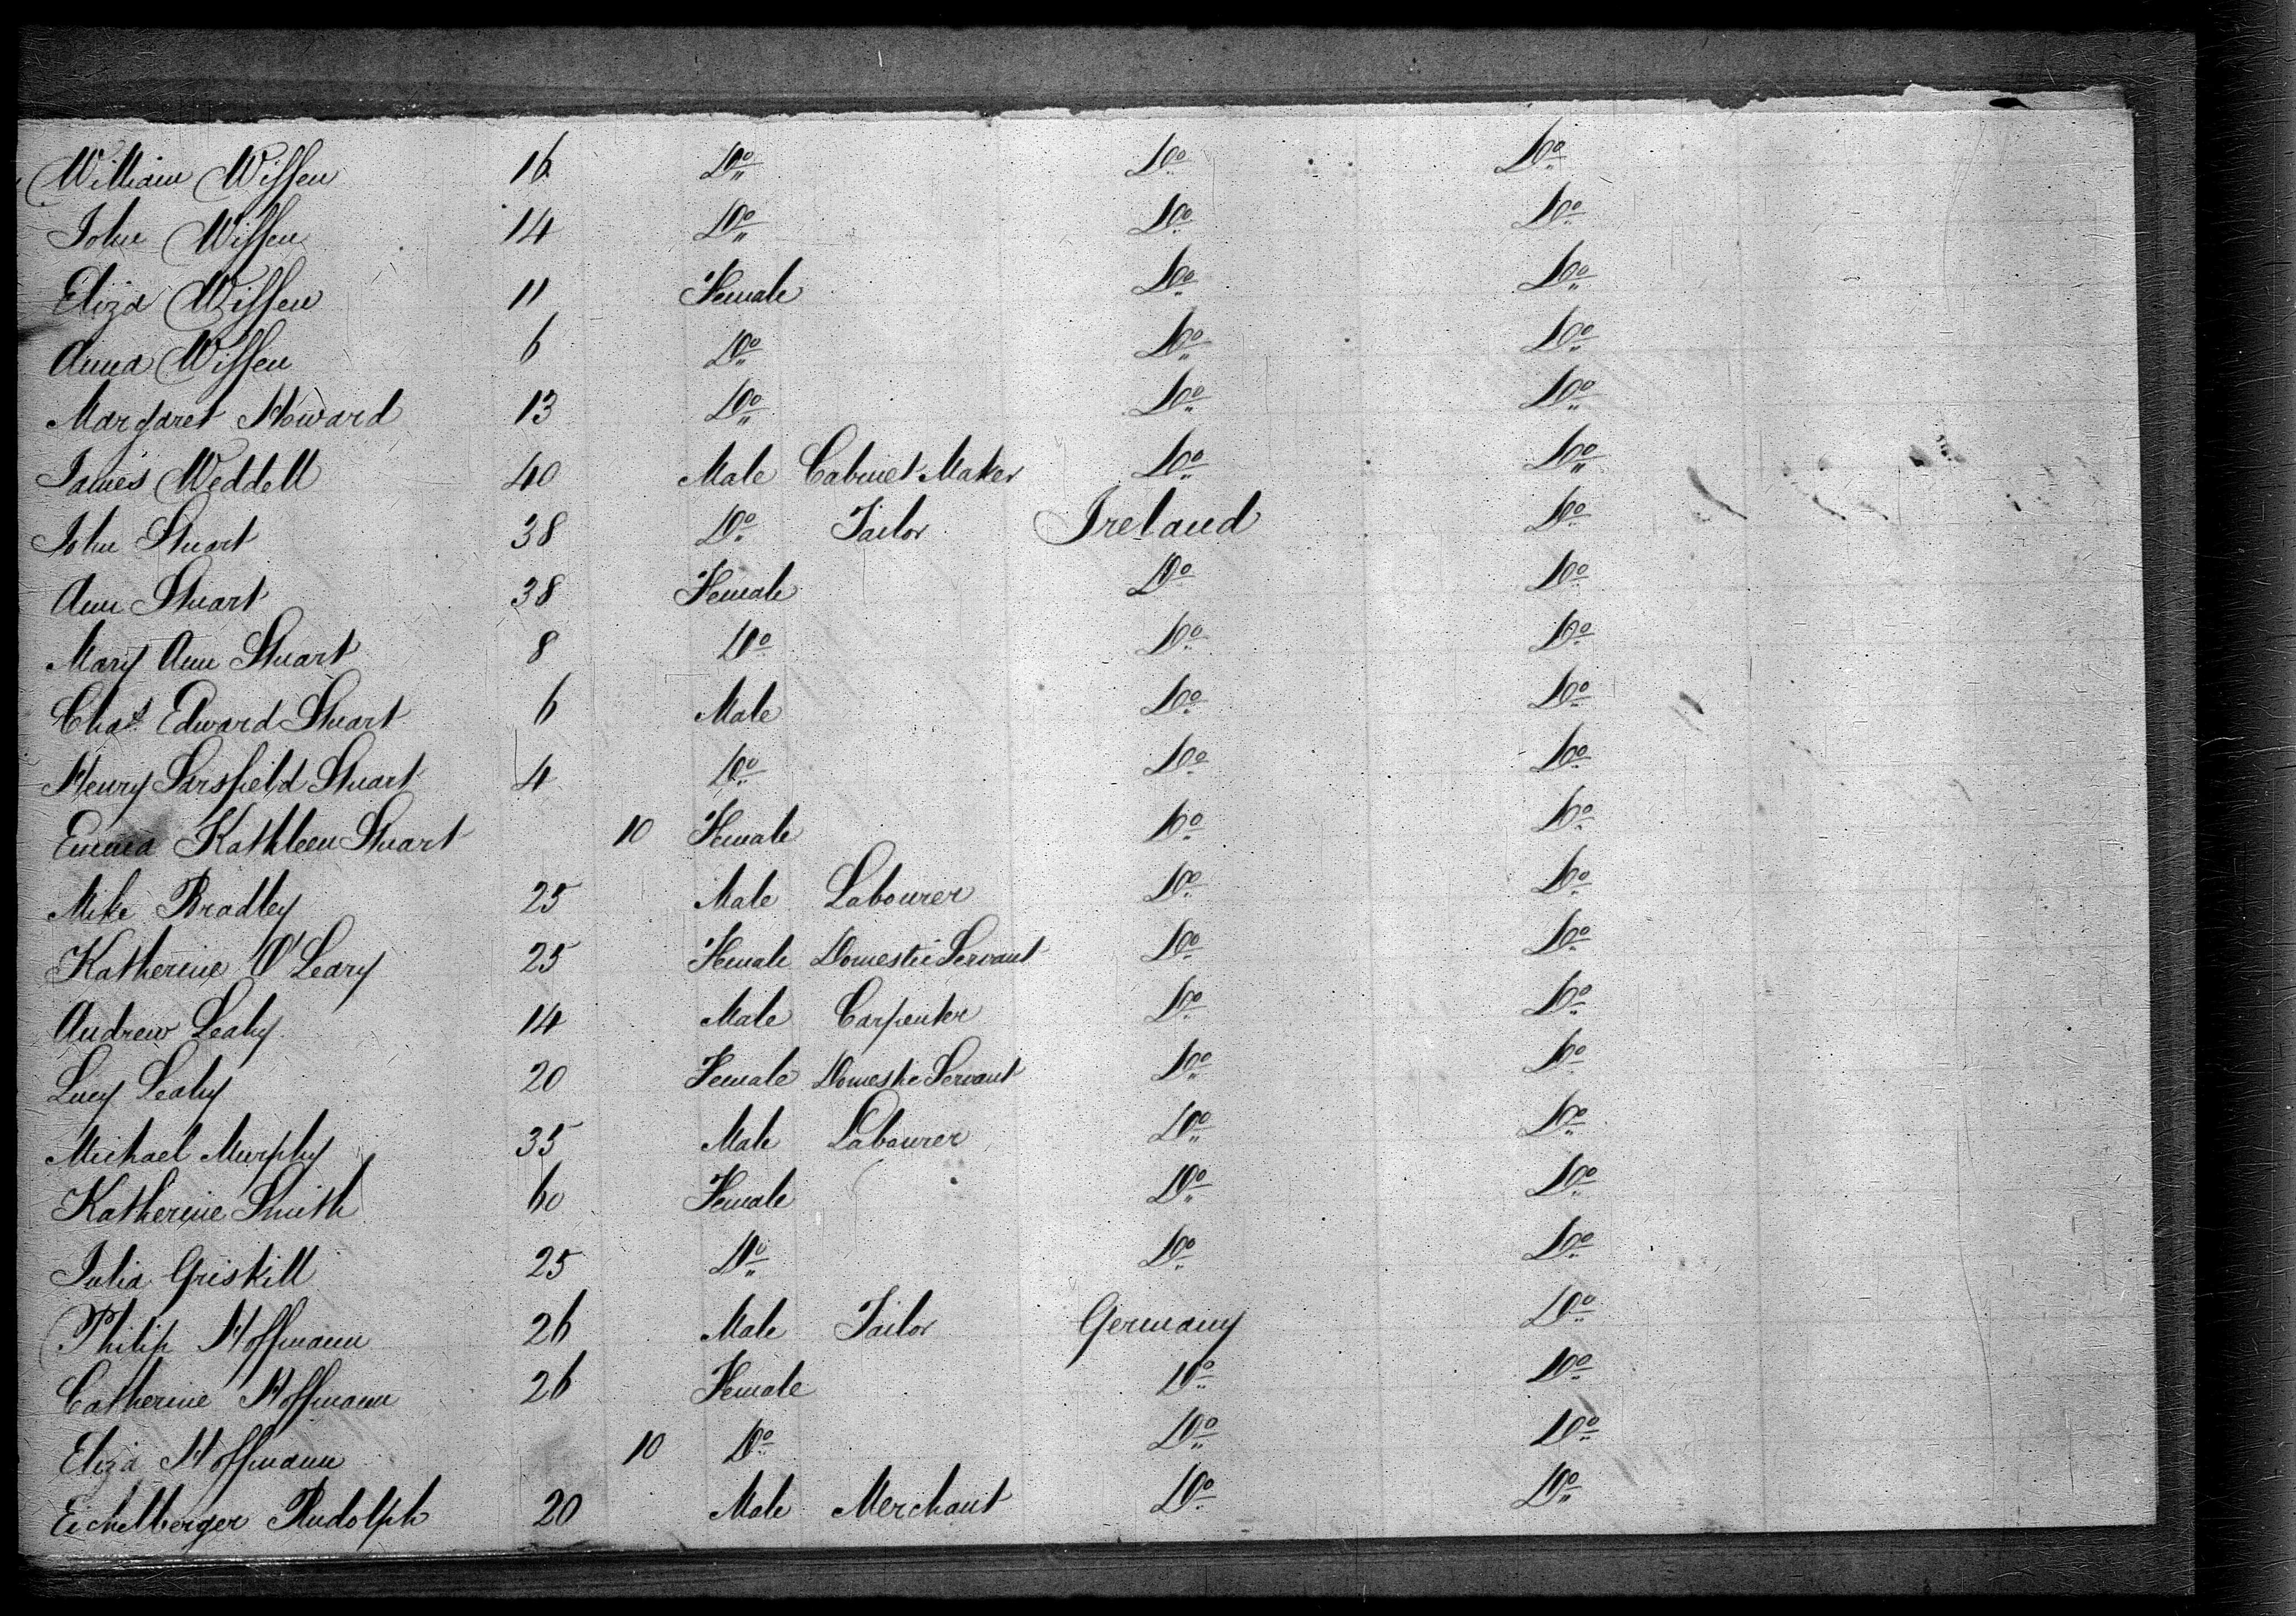 William Wissen 16 Do Do Do
John Wissen 14 Do Do Do
Eliza Wissen 11 Female Do Do
Anna Wissen 6 Do Do Do
Margaret Howard 13 Do Do Do
James Weddell 40 Male Cabinet Maker Do Do
John Stuart 38 Do Tailor Ireland Do
Ann Stuart 38 Female Do Do
Mary Ann Stuart 8 Do Do Do
Chas. Edward Stuart 6 Male Do Do
Henry Sarsfield Stuart 4 Do Do Do
Emma Kathleen Stuart 10 Female Do Do
Mike Bradley 25 Male Labourer Do Do
Katherine O'Leary 25 Female Domestic Servant Do Do
Andrew Leahy 14 Male Carpenter Do Do
Lucy Leahy 20 Female Domestic Servant Do Do
Michael Murphy 35 Male Labourer Do Do
Katherine Smith 60 Female Do Do
Julia Griskill 25 Do Do Do
Philip Hoffmann 26 Male Tailor Germany Do
Catherine Hoffmann 26 Female Do Do
Eliza Hoffmann 10 Do Do Do
Eichelberger Rudolph 20 Male Merchant Do Do